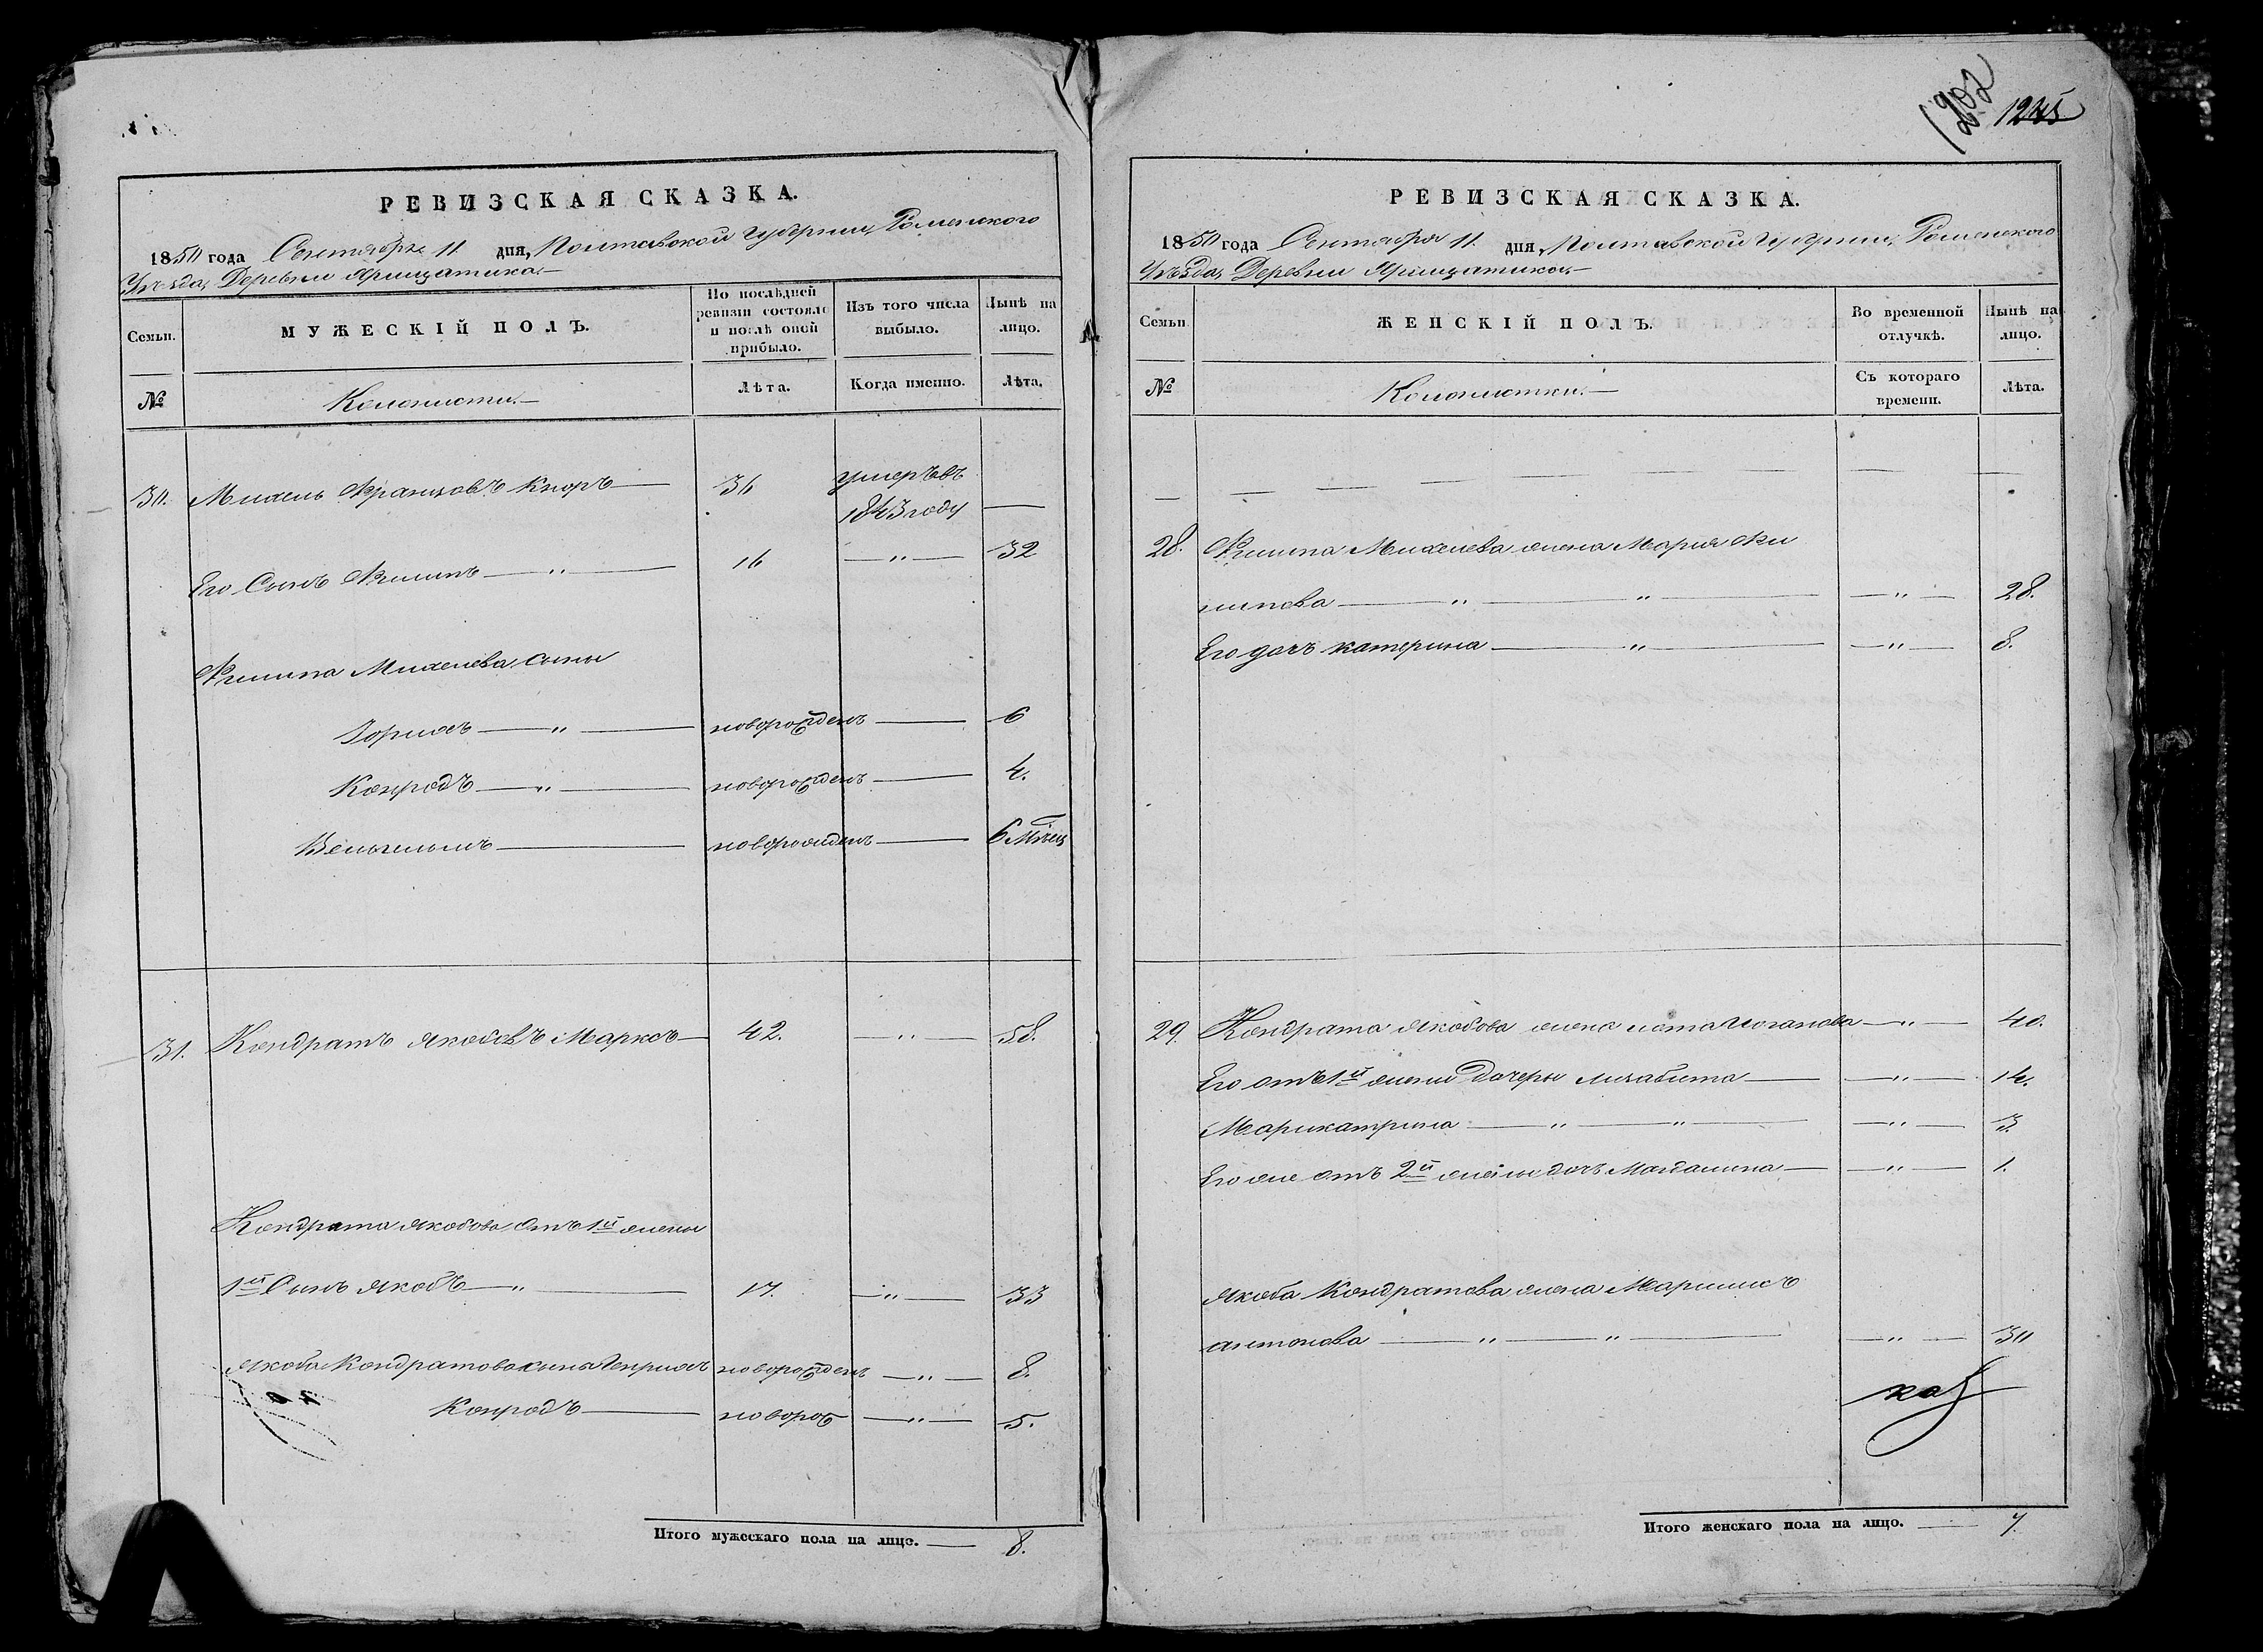 1202 1245
РЕВИЗСКАЯ СКАЗКА.
1850 года Сентября 11 дня, Полтавской Губернии, Роменского
Уѣзда, Деревни
Семьи.
МУЖЕСКІЙ ПОЛЪ.
По послѣдней ревизіи состояло и послѣ оной прибыло.
Изъ того числа выбыло.
Нынѣ на лицо.
№
Колонисты.
Лѣта.
Когда именно.
Лѣта.
30. Михель Францовъ Кноръ 36 умеръ въ
1843 году
Его Сынъ Филипъ — " — 16 — " — 32
Филипа Михелева сыны
— " — новорожденъ — 6
Конродъ — " — новорожденъ — 4.
Вельгельмъ — новорожденъ — 6 Мѣсец
31. Кондратъ Якобовъ Марксъ — 42. — " — 58.
Кондрата Якобова отъ 1й жены
1й Сынъ Якобъ — " — 17. — " — 33
Якоба Кондратова сыны Генрихъ новорожденъ — " — 8.
Конродъ — новорож — " — 5.
Итого мужескаго пола на лицо. — 8.
РЕВИЗСКАЯ СКАЗКА.
1850 года Сентября 11. дня, Полтавской Губерніи, Роменского
Уѣзда, Деревни
Семьи
ЖЕНСКІЙ ПОЛЪ.
Во временной отлучкѣ.
Нынѣ на лицо.
№
Колонистки.
Съ котораго времени.
Лѣта.
28. Филипа Михелева жена Мария Фи
липова — " — " — — " — 28.
Его дочь катерина — " — — " — 8.
29. Кондрата Якобова жена Иоганова — " — 40.
Его отъ 1й жены Дочеры лизабета — — " — 14.
Марикатрина — " — " — — " — 3
Его же отъ 2й жены дочь Магдалина — — " — 1.
Якоба Кондратова жена
антонова — " — " — — " — 30
Итого женскаго пола на лицо. — 7.